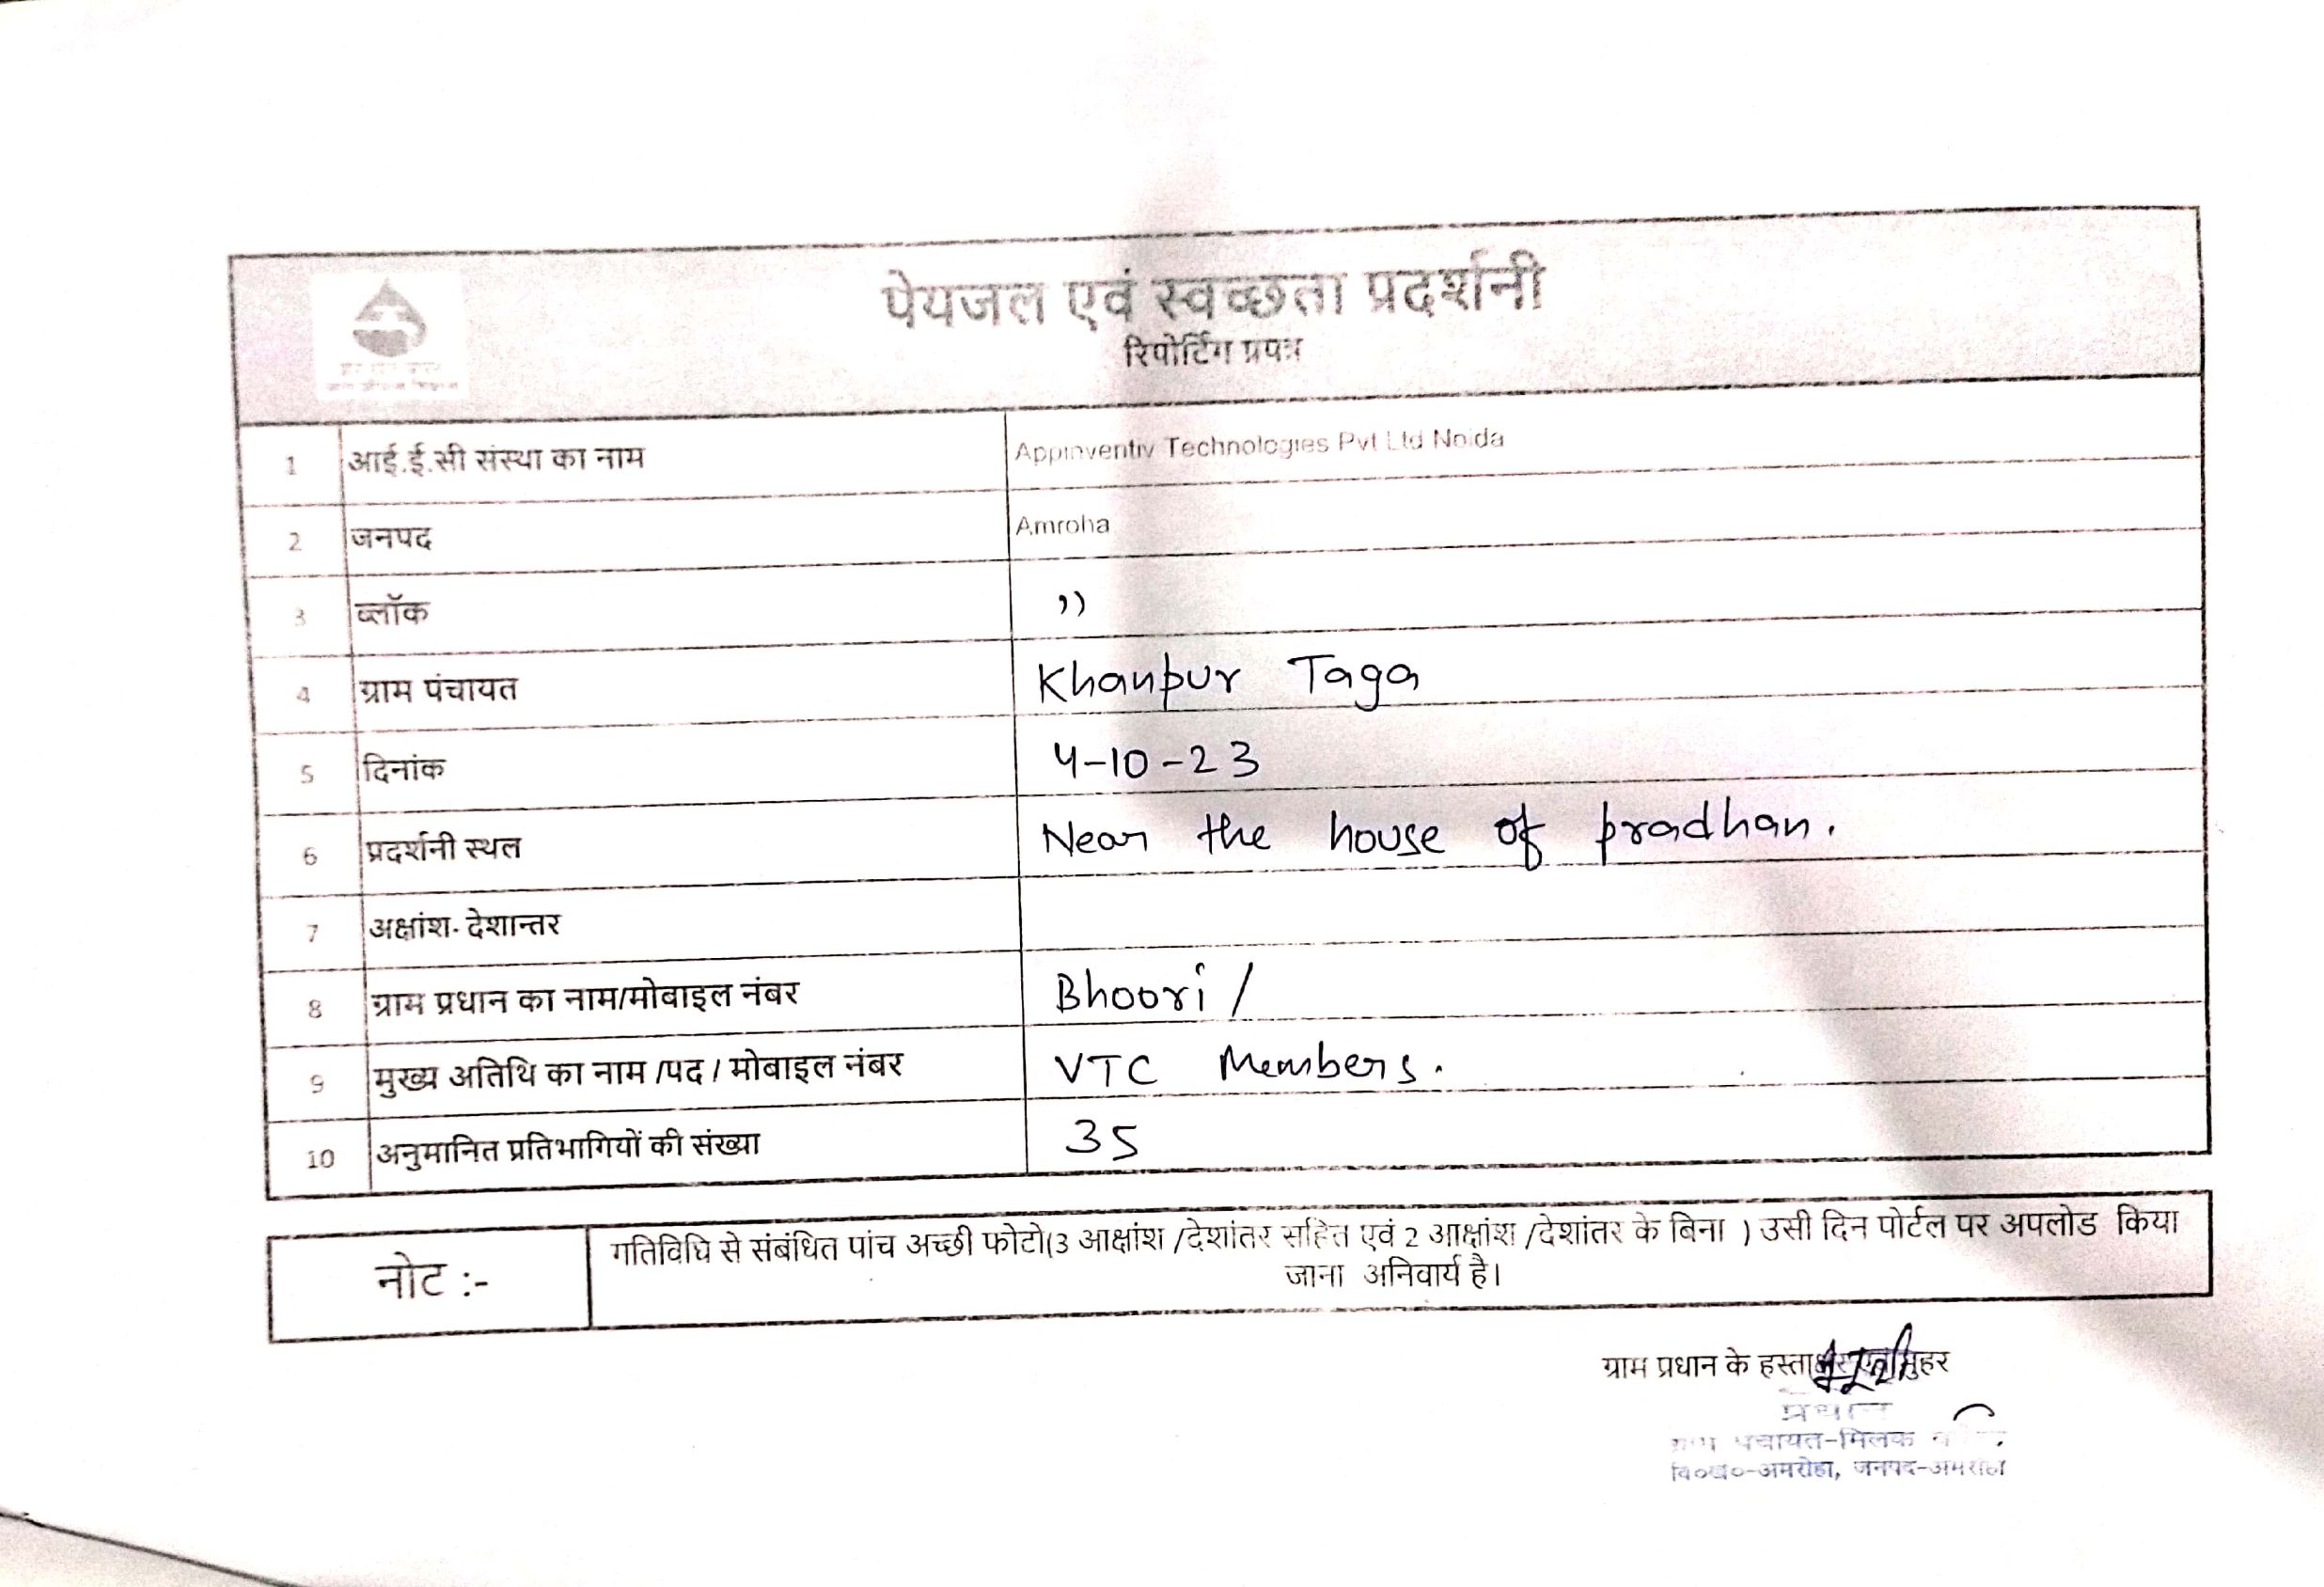 पेयजल एवं स्वच्छता प्रदर्शनी
रिपोर्टिंग प्रपत्र
1 आई.ई.सी संस्था का नाम Appinventiv Technologies Pvt Ltd Noida
2 जनपद Amroha
3 ब्लॉक ,,
4 ग्राम पंचायत Khanpur Taga
5 दिनांक 4-10-23
6 प्रदर्शनी स्थल Near the house of pradhan.
7 अक्षांश- देशान्तर
8 ग्राम प्रधान का नाम/मोबाइल नंबर Bhoori /
9 मुख्य अतिथि का नाम /पद / मोबाइल नंबर VTC Members.
10 अनुमानित प्रतिभागियों की संख्या 35
नोट :- गतिविधि से संबंधित पांच अच्छी फोटो(3 आक्षांश /देशांतर सहित एवं 2 आक्षांश /देशांतर के बिना ) उसी दिन पोर्टल पर अपलोड किया
जाना अनिवार्य है।
ग्राम प्रधान के हस्ताक्षर एवं मुहर
प्रधान
ग्राम पंचायत-मिलक
वि०ख०-अमरोहा, जनपद-अमरोहा